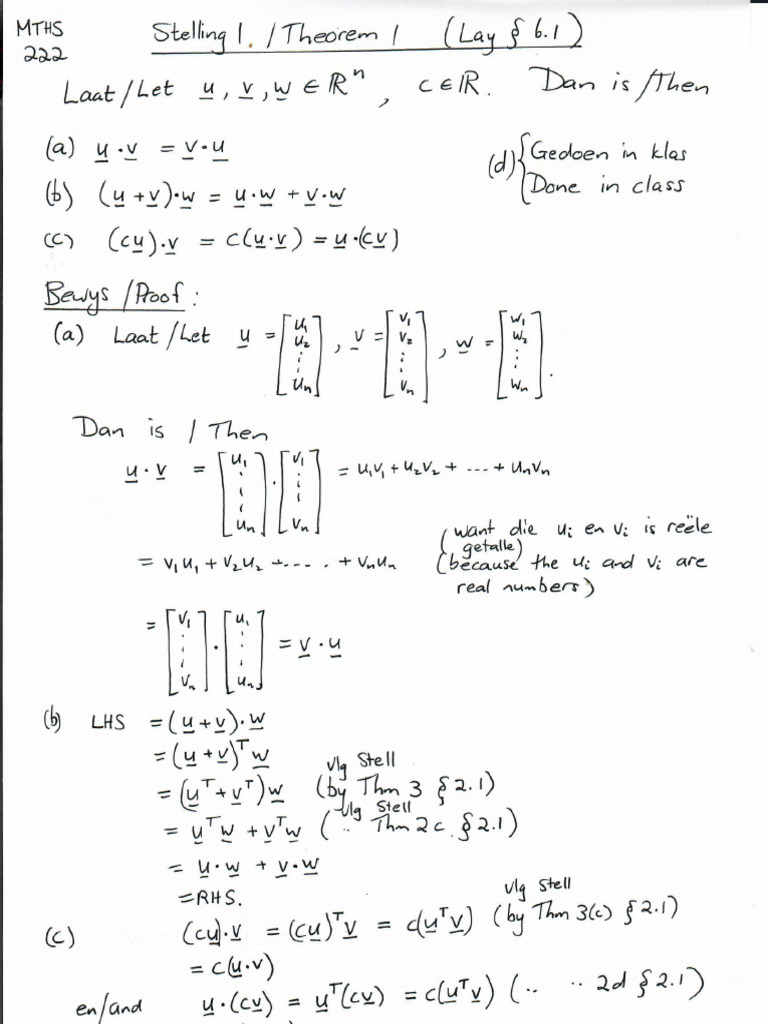 MTHS 222
Stelling 1. / Theorem 1 (Lay § 6.1)
Laat/Let u, v, w ∈ ℝⁿ, c ∈ ℝ. Dan is/Then
(a) u·v = v·u
(b) (u+v)·w = u·w + v·w
(c) (cu)·v = c(u·v) = u·(cv)
(d) { Gedoen in klas
Done in class
Bewys/Proof:
(a) Laat/Let u = [u₁ u₂ ⋮ uₙ], v = [v₁ v₂ ⋮ vₙ], w = [w₁ w₂ ⋮ wₙ].
Dan is / Then
u·v = [u₁ ⋮ uₙ]·[v₁ ⋮ vₙ] = u₁v₁ + u₂v₂ + ---- + uₙvₙ
(want die uᵢ en vᵢ is reële
getalle)
= v₁u₁ + v₂u₂ + ---- . + vₙuₙ (because the uᵢ and vᵢ are
real numbers)
= [v₁ ⋮ vₙ]·[u₁ ⋮ uₙ] = v·u
(b) LHS = (u+v)·w
= (u+v)ᵀw
vlg Stell
= (uᵀ+vᵀ)w (by Thm 3 § 2.1)
vlg Stell
= uᵀw + vᵀw ( ·· Thm 2c. § 2.1)
= u·w + v·w
= RHS.
vlg Stell
(c) (cu)·v = (cu)ᵀv = c(uᵀv) (by Thm 3(c) § 2.1)
= c(u·v)
en/and u·(cv) = uᵀ(cv) = c(uᵀv) (·· ·· 2d § 2.1)